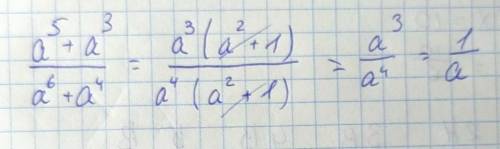 (a⁵ + a³)/(a⁶ + a⁴) = (a³ (a² + 1))/(a⁴ (a² + 1)) = a³/a⁴ = 1/a